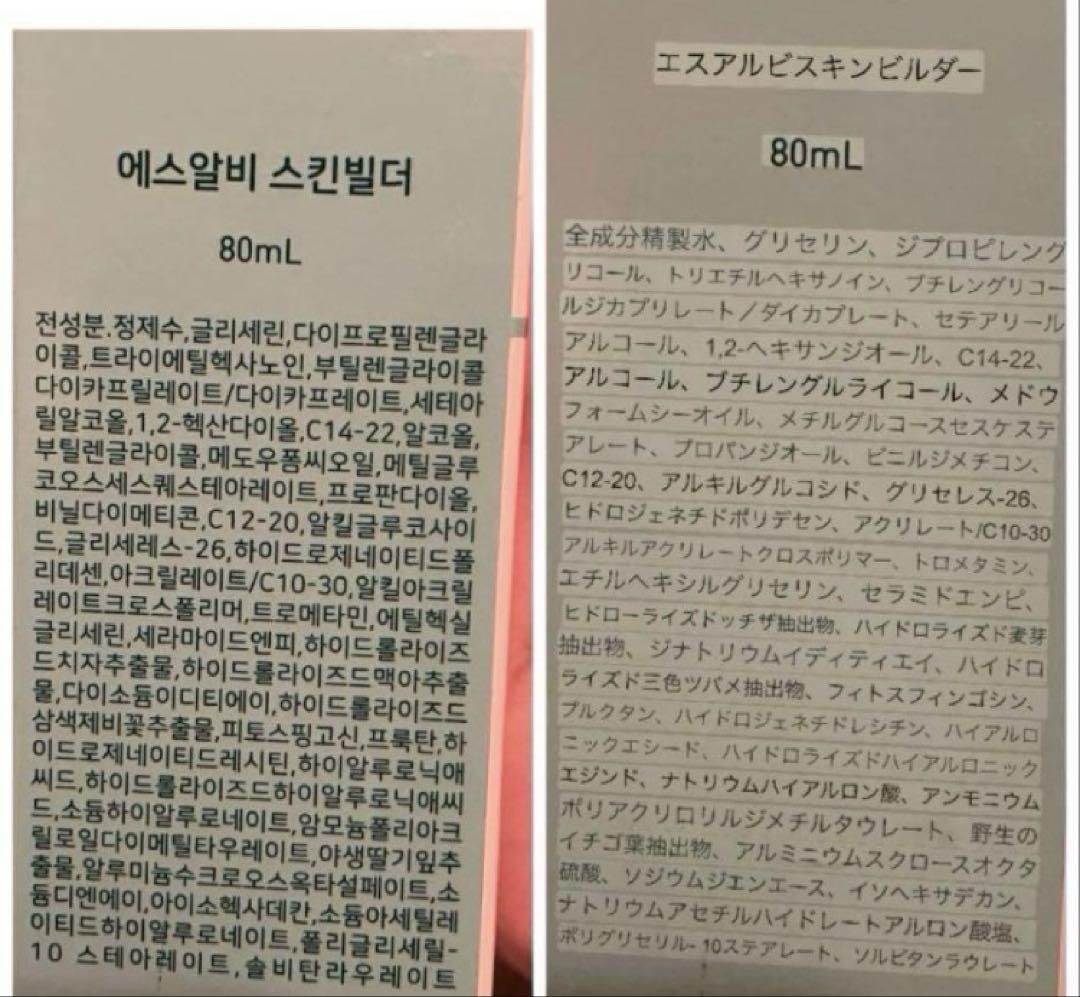 에스알비 스킨빌더
80mL
전성분.정제수,글리세린,다이프로필렌글라
이콜,트라이에틸헥사노인,부틸렌글라이콜
다이카프릴레이트/다이카프레이트,세테아
릴알코올,1,2-헥산다이올,C14-22,알코올,
부틸렌글라이콜,메도우폼씨오일,메틸글루
코오스세스퀘스테아레이트,프로판다이올,
비닐다이메티콘,C12-20,알킬글루코사이
드,글리세레스-26,하이드로제네이티드폴
리데센,아크릴레이트/C10-30,알킬아크릴
레이트크로스폴리머,트로메타민,에틸헥실
글리세린,세라마이드엔피,하이드롤라이즈
드치자추출물,하이드롤라이즈드맥아추출
물,다이소듐이디티에이,하이드롤라이즈드
삼색제비꽃추출물,피토스핑고신,프룩탄,하
이드로제네이티드레시틴,하이알루로닉애
씨드,하이드롤라이즈드하이알루로닉애씨
드,소듐하이알루로네이트,암모늄폴리아크
릴로일다이메틸타우레이트,야생딸기잎추
출물,알루미늄수크로오스옥타설페이트,소
듐디엔에이,아이소헥사데칸,소듐아세틸레
이티드하이알루로네이트,폴리글리세릴-
10 스테아레이트,솔비탄라우레이트
エスアルビスキンビルダー
80mL
全成分精製水、グリセリン、ジプロピレング
リコール、トリエチルヘキサノイン、ブチレングリコー
ルジカプリレート/ダイカプレート、セテアリール
アルコール、1,2-ヘキサンジオール、C14-22、
アルコール、ブチレングルライコール、メドウ
フォームシーオイル、メチルグルコースセスケステ
アレート、プロパンジオール、ビニルジメチコン、
C12-20、アルキルグルコシド、グリセレス-26、
ヒドロジェネチドポリデセン、アクリレート/C10-30
アルキルアクリレートクロスポリマー、トロメタミン、
エチルヘキシルグリセリン、セラミドエンピ、
ヒドローライズドッチザ抽出物、ハイドロライズド麦芽
抽出物、ジナトリウムイディティエイ、ハイドロ
ライズド三色ツバメ抽出物、フィトスフィンゴシン、
プルクタン、ハイドロジェネチドレシチン、ハイアルロ
ニックエシード、ハイドロライズドハイアルロニック
エジンド、ナトリウムハイアルロン酸、アンモニウム
ポリアクリロリルジメチルタウレート、野生の
イチゴ葉抽出物、アルミニウムスクロースオクタ
硫酸、ソジウムジエンエース、イソヘキサデカン、
ナトリウムアセチルハイドレートアルロン酸塩、
ポリグリセリル- 10ステアレート、ソルビタンラウレート